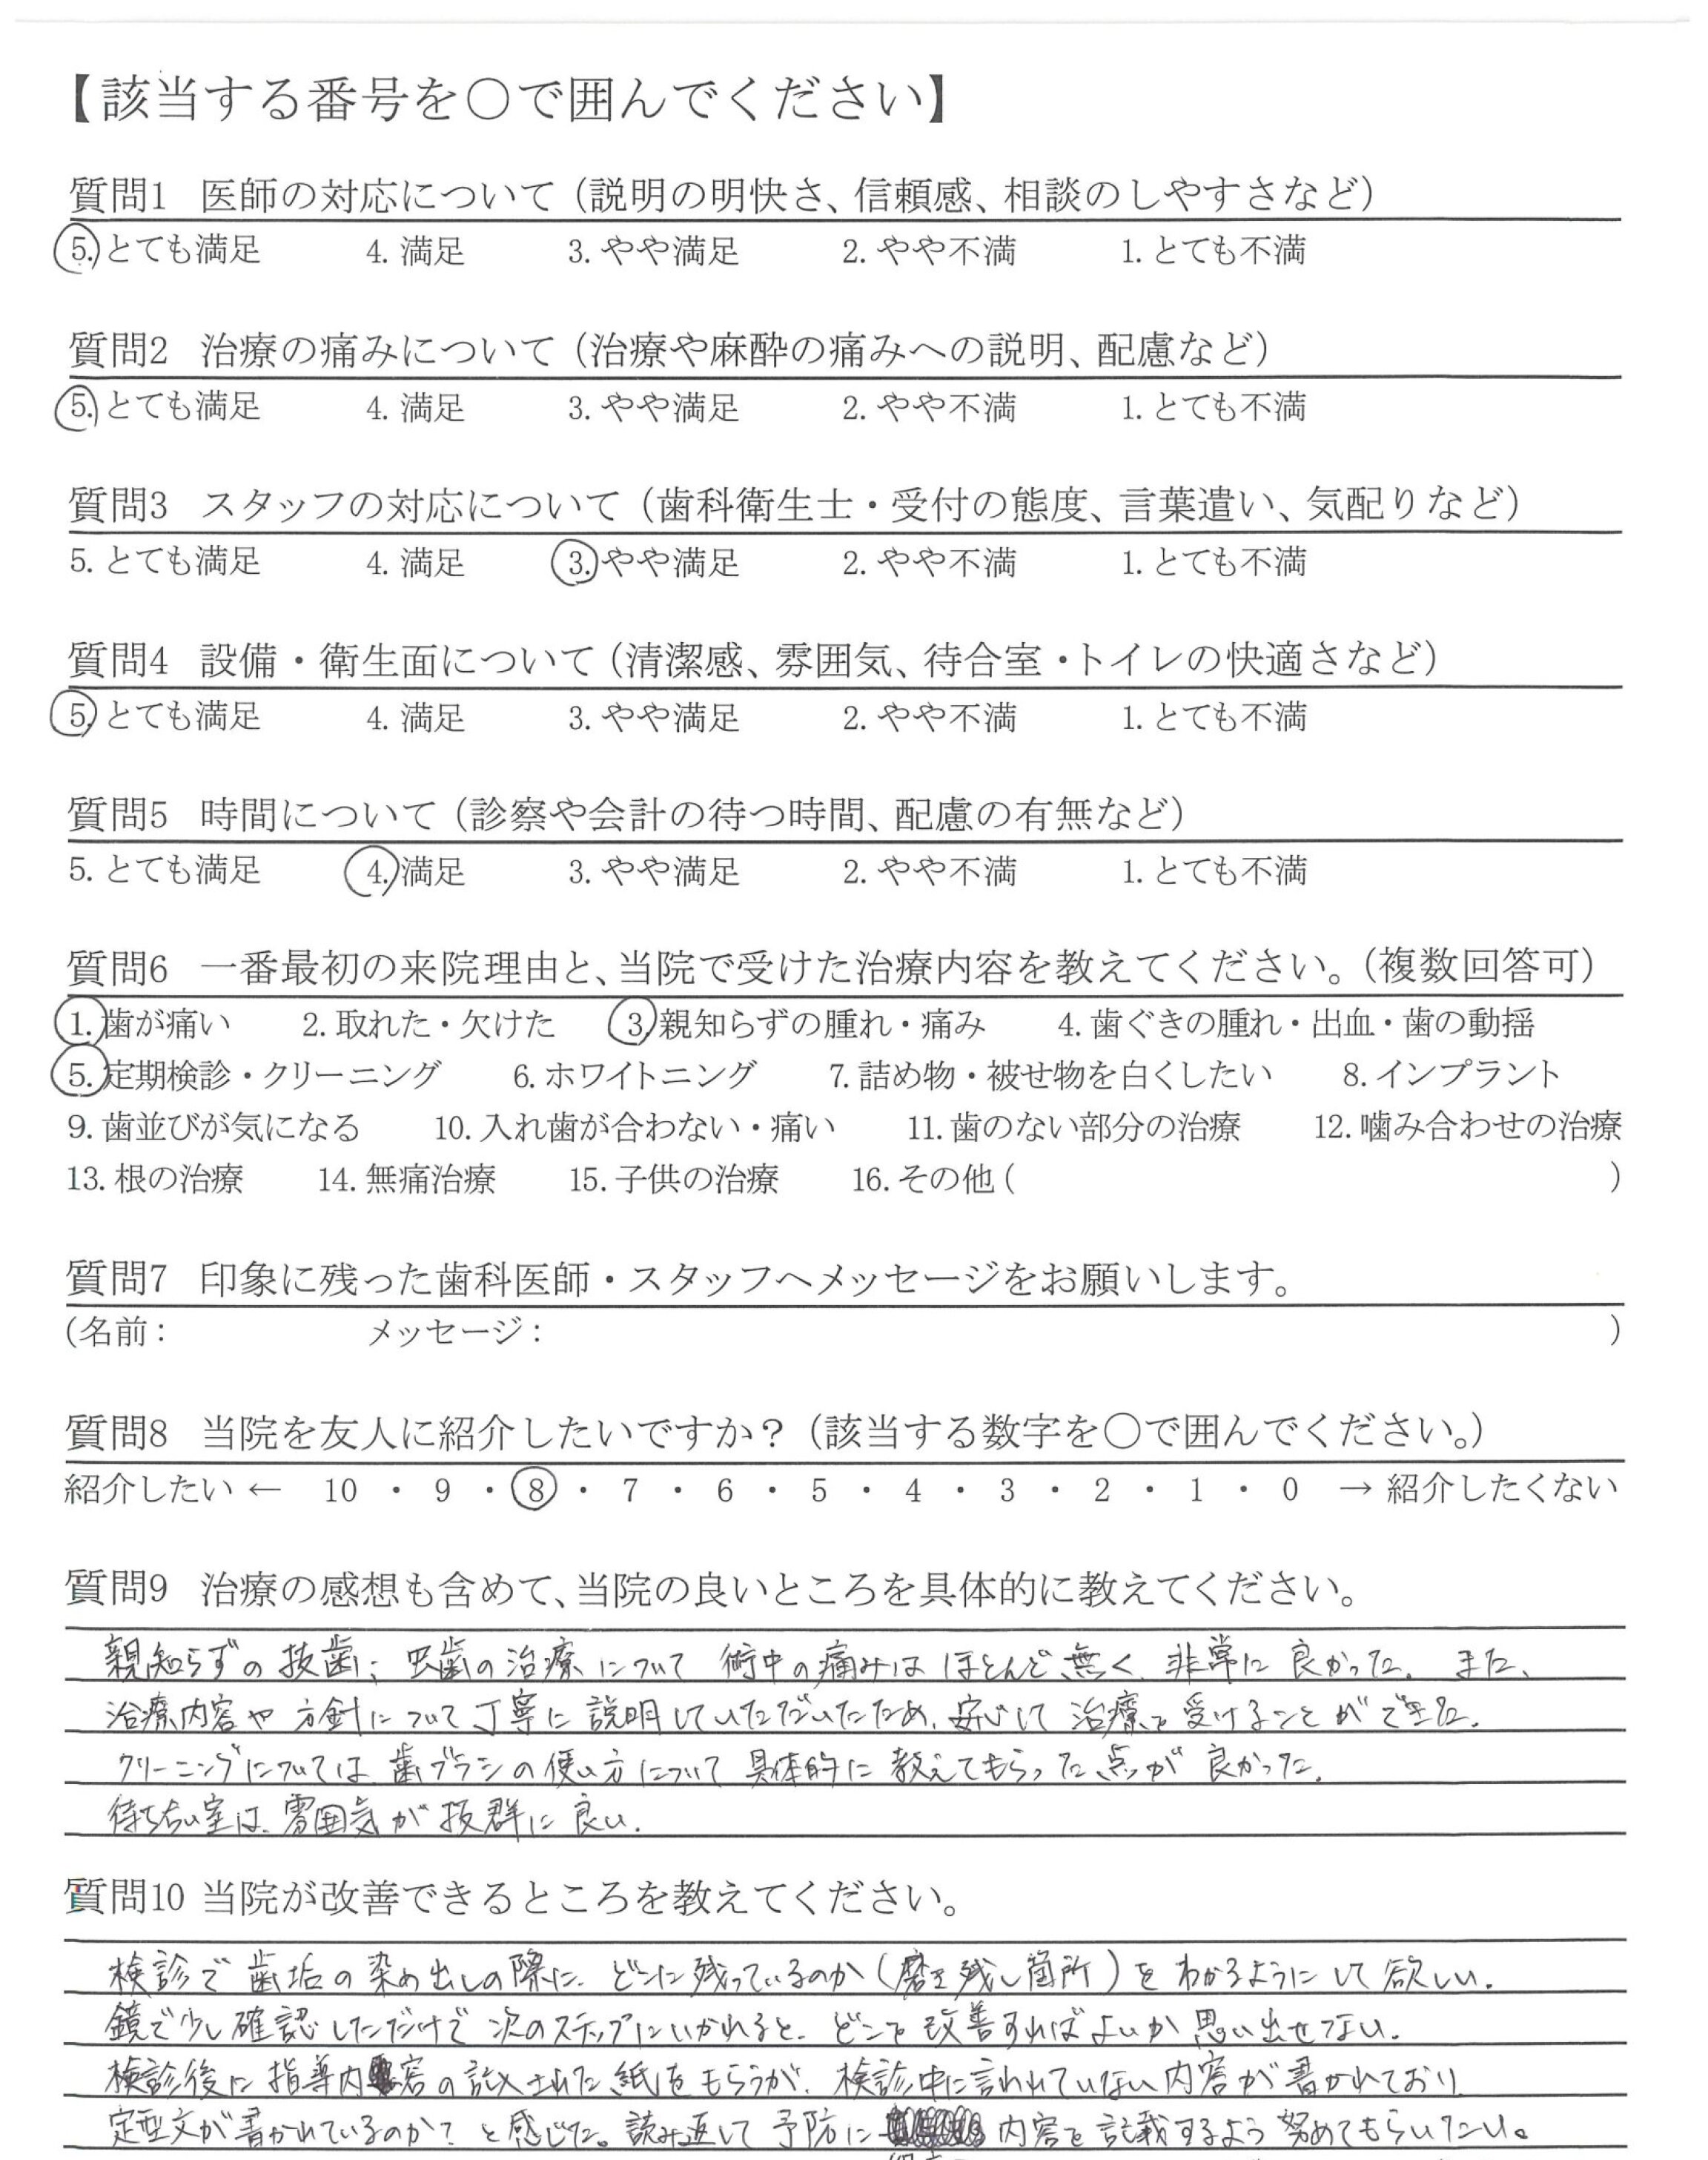 【該当する番号を○で囲んでください】
質問1 医師の対応について（説明の明快さ、信頼感、相談のしやすさなど）
5. とても満足 4. 満足 3. やや満足 2. やや不満 1. とても不満
質問2 治療の痛みについて（治療や麻酔の痛みへの説明、配慮など）
5. とても満足 4. 満足 3. やや満足 2. やや不満 1. とても不満
質問3 スタッフの対応について（歯科衛生士・受付の態度、言葉遣い、気配りなど）
5. とても満足 4. 満足 3. やや満足 2. やや不満 1. とても不満
質問4 設備・衛生面について（清潔感、雰囲気、待合室・トイレの快適さなど）
5. とても満足 4. 満足 3. やや満足 2. やや不満 1. とても不満
質問5 時間について（診察や会計の待つ時間、配慮の有無など）
5. とても満足 4. 満足 3. やや満足 2. やや不満 1. とても不満
質問6 一番最初の来院理由と、当院で受けた治療内容を教えてください。（複数回答可）
1. 歯が痛い 2. 取れた・欠けた 3. 親知らずの腫れ・痛み 4. 歯ぐきの腫れ・出血・歯の動揺
5. 定期検診・クリーニング 6. ホワイトニング 7. 詰め物・被せ物を白くしたい 8. インプラント
9. 歯並びが気になる 10. 入れ歯が合わない・痛い 11. 歯のない部分の治療 12. 噛み合わせの治療
13. 根の治療 14. 無痛治療 15. 子供の治療 16. その他（ ）
質問7 印象に残った歯科医師・スタッフへメッセージをお願いします。
（名前： メッセージ： ）
質問8 当院を友人に紹介したいですか？（該当する数字を○で囲んでください。）
紹介したい ← 10 ・ 9 ・ 8 ・ 7 ・ 6 ・ 5 ・ 4 ・ 3 ・ 2 ・ 1 ・ 0 → 紹介したくない
質問9 治療の感想も含めて、当院の良いところを具体的に教えてください。
親知らずの抜歯、虫歯の治療について 術中の痛みはほとんど無く、非常に良かった。また、
治療内容や方針について丁寧に説明していただいたため、安心して治療を受けることができた。
クリーニングについては、歯ブラシの使い方について具体的に教えてもらった点が良かった。
待ち合い室は、雰囲気が抜群に良い。
質問10 当院が改善できるところを教えてください。
検診で歯垢の染め出しの際に、どこに残っているのか（磨き残し箇所）をわかるようにして欲しい。
鏡で少し確認しただけで次のステップにいかれると、どこを改善すればよいか思い出せない。
検診後に指導内容の記入された紙をもらうが、検診中に言われていない内容が書かれており
定型文が書かれているのか？と感じた。読み返して予防に 内容を記載するよう努めてもらいたい。